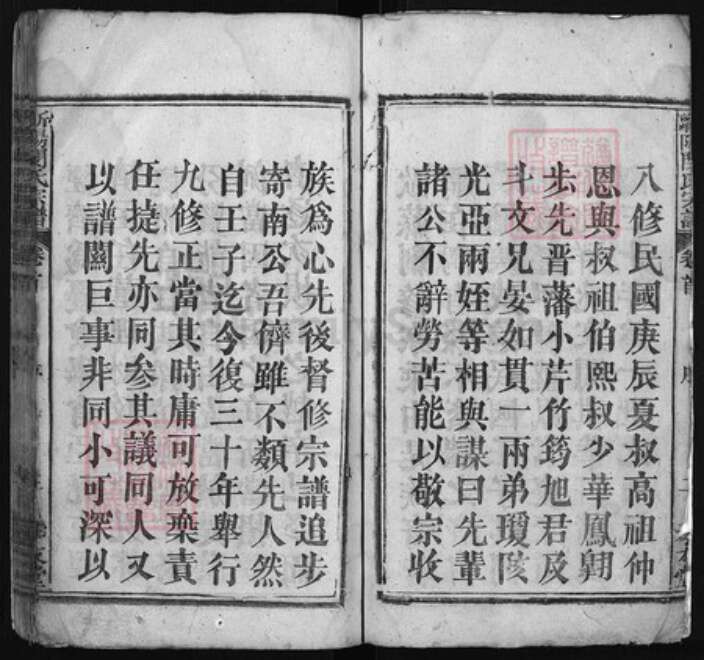 八修民國庚辰夏叔高祖仲
恩與叔祖伯熙叔少華鳳翱
步先晋藩小芹竹筠旭君及
斗文兄晏如貫一兩弟瓊陔
光亞兩姪等相與謀曰先輩
諸公不辭勞苦能以敬宗收
族爲心先後督修宗譜追步
寄南公吾儕雖不類先人然
自王子迄今復三十年舉行
九修正當其時庸可放棄責
任捷先亦同參其議同人又
以譜關巨事非同小可深以
氏宗譜
卷首